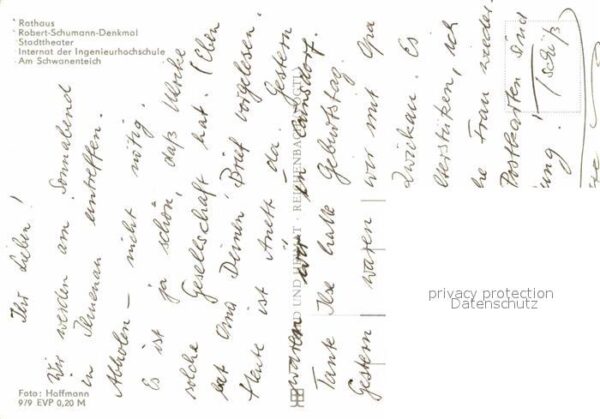 Rathaus
Robert-Schumann-Denkmal
Stadttheater
Internat der Ingenieurhochschule
Am Schwanenteich
Ihr Lieben!
Wir werden am Sonnabend
in Ilmenau eintreffen.
Abholen – nicht nötig.
Es ist ja schön, daß Ulrike
solche Gesellschaft hat. (Eben
hat Oma Deinen Brief vorgelesen.
Heute ist Anett da. Gestern
waren wir in
Tante Ilse hatte Geburtstag.
Gestern waren wir mit Opa
Zwickau. Es
ich
Frau
Postkarten sind
Tschüß
BILD UND HEIMAT · REICHENBACH (VOGTL)
Foto: Hoffmann
9/9 EVP 0,20 M
privacy protection
Datenschutz